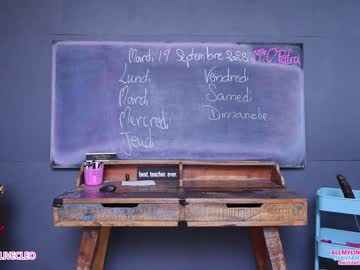 Mardi 19 Septembre 2023
Lundi
Mardi
Mercredi
Jeudi
Vendredi
Samedi
Dimanche
best. teacher. ever.
LIVECLEO
ALLMYLIN